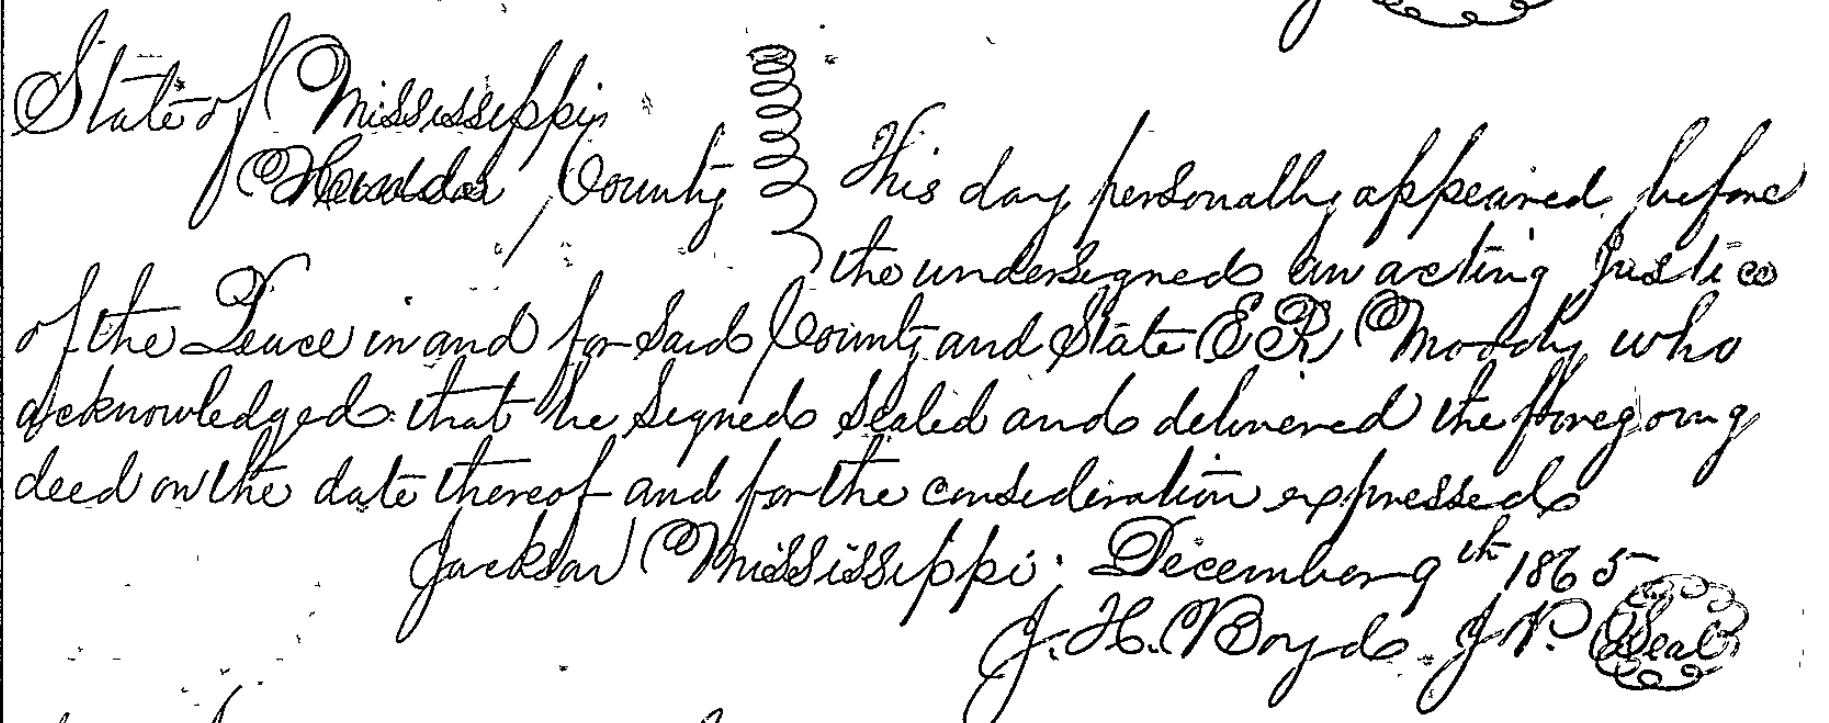 State of Mississippi
Hinds County This day personally appeared before
the undersigned an acting Justice
of the Peace in and for said County and State E R Moody who
acknowledged that he signed sealed and delivered the foregoing
deed on the date thereof and for the consideration expressed
Jackson Mississippi. December 9th 1865
J. H. Boyd J P. Seal